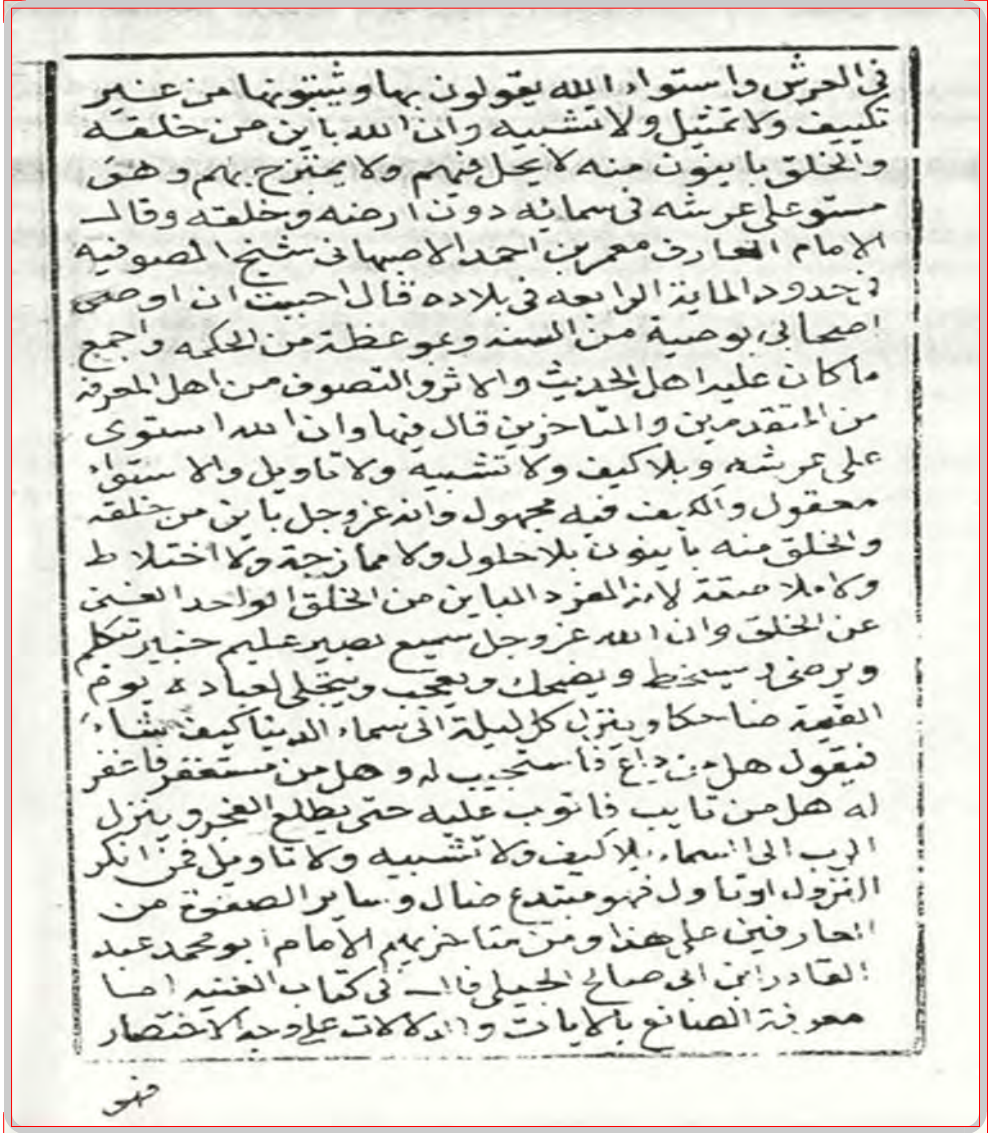 في العرش واستواء الله يقولون بها ويثبتونها من غير
تكييف ولا تمثيل ولا تشبيه وان الله باين من خلقه
والخلق باينون منه لا يحل فيهم ولا يمتزج بهم وهو
مستو على عرشه في سمائه دون ارضه وخلقه وقال
الامام العارف معمر بن احمد الاصبهاني شيخ الصوفية
في حدود الماية الرابعه في بلاده قال احببت ان اوصي
اصحابي بوصية من السنه وموعظة من الحكمه واجمع
ما كان عليه اهل الحديث والاثر والتصوف من اهل المعرفة
من المتقدمين والمتاخرين قال فيها وان الله استوى
على عرشه وبلا كيف ولا تشبيه ولا تاويل والاستواء
معقول والكيف فيه مجهول وانه عز وجل باين من خلقه
والخلق منه باينون بلا حلول ولا ممازجة ولا اختلاط
ولا ملاصقة لانه المفرد الباين من الخلق الواحد الغني
عن الخلق وان الله عز وجل سميع بصير عليم خبير يتكلم
ويرضى ويسخط ويضحك ويعجب ويتجلى لعباده يوم
القيمة ضاحكا وينزل كل ليلة الى سماء الدينا كيف يشاء
فيقول هل من داع فاستجيب له وهل من مستغفر فاغفر
له هل من تايب فاتوب عليه حتى يطلع الفجر وينزل
الرب الى السماء بلا كيف ولا تشبيه ولا تاويل فمن انكر
النزول او تاول فهو مبتدع ضال وساير الصفوة من
العارفين على هذا ومن متاخريهم الامام ابو محمد عبد
القادر ابن ابي صالح الجيلي قال في كتاب الغنيه اما
معرفة الصانع بالايات والدلالات على وجه الاختصار
فهو